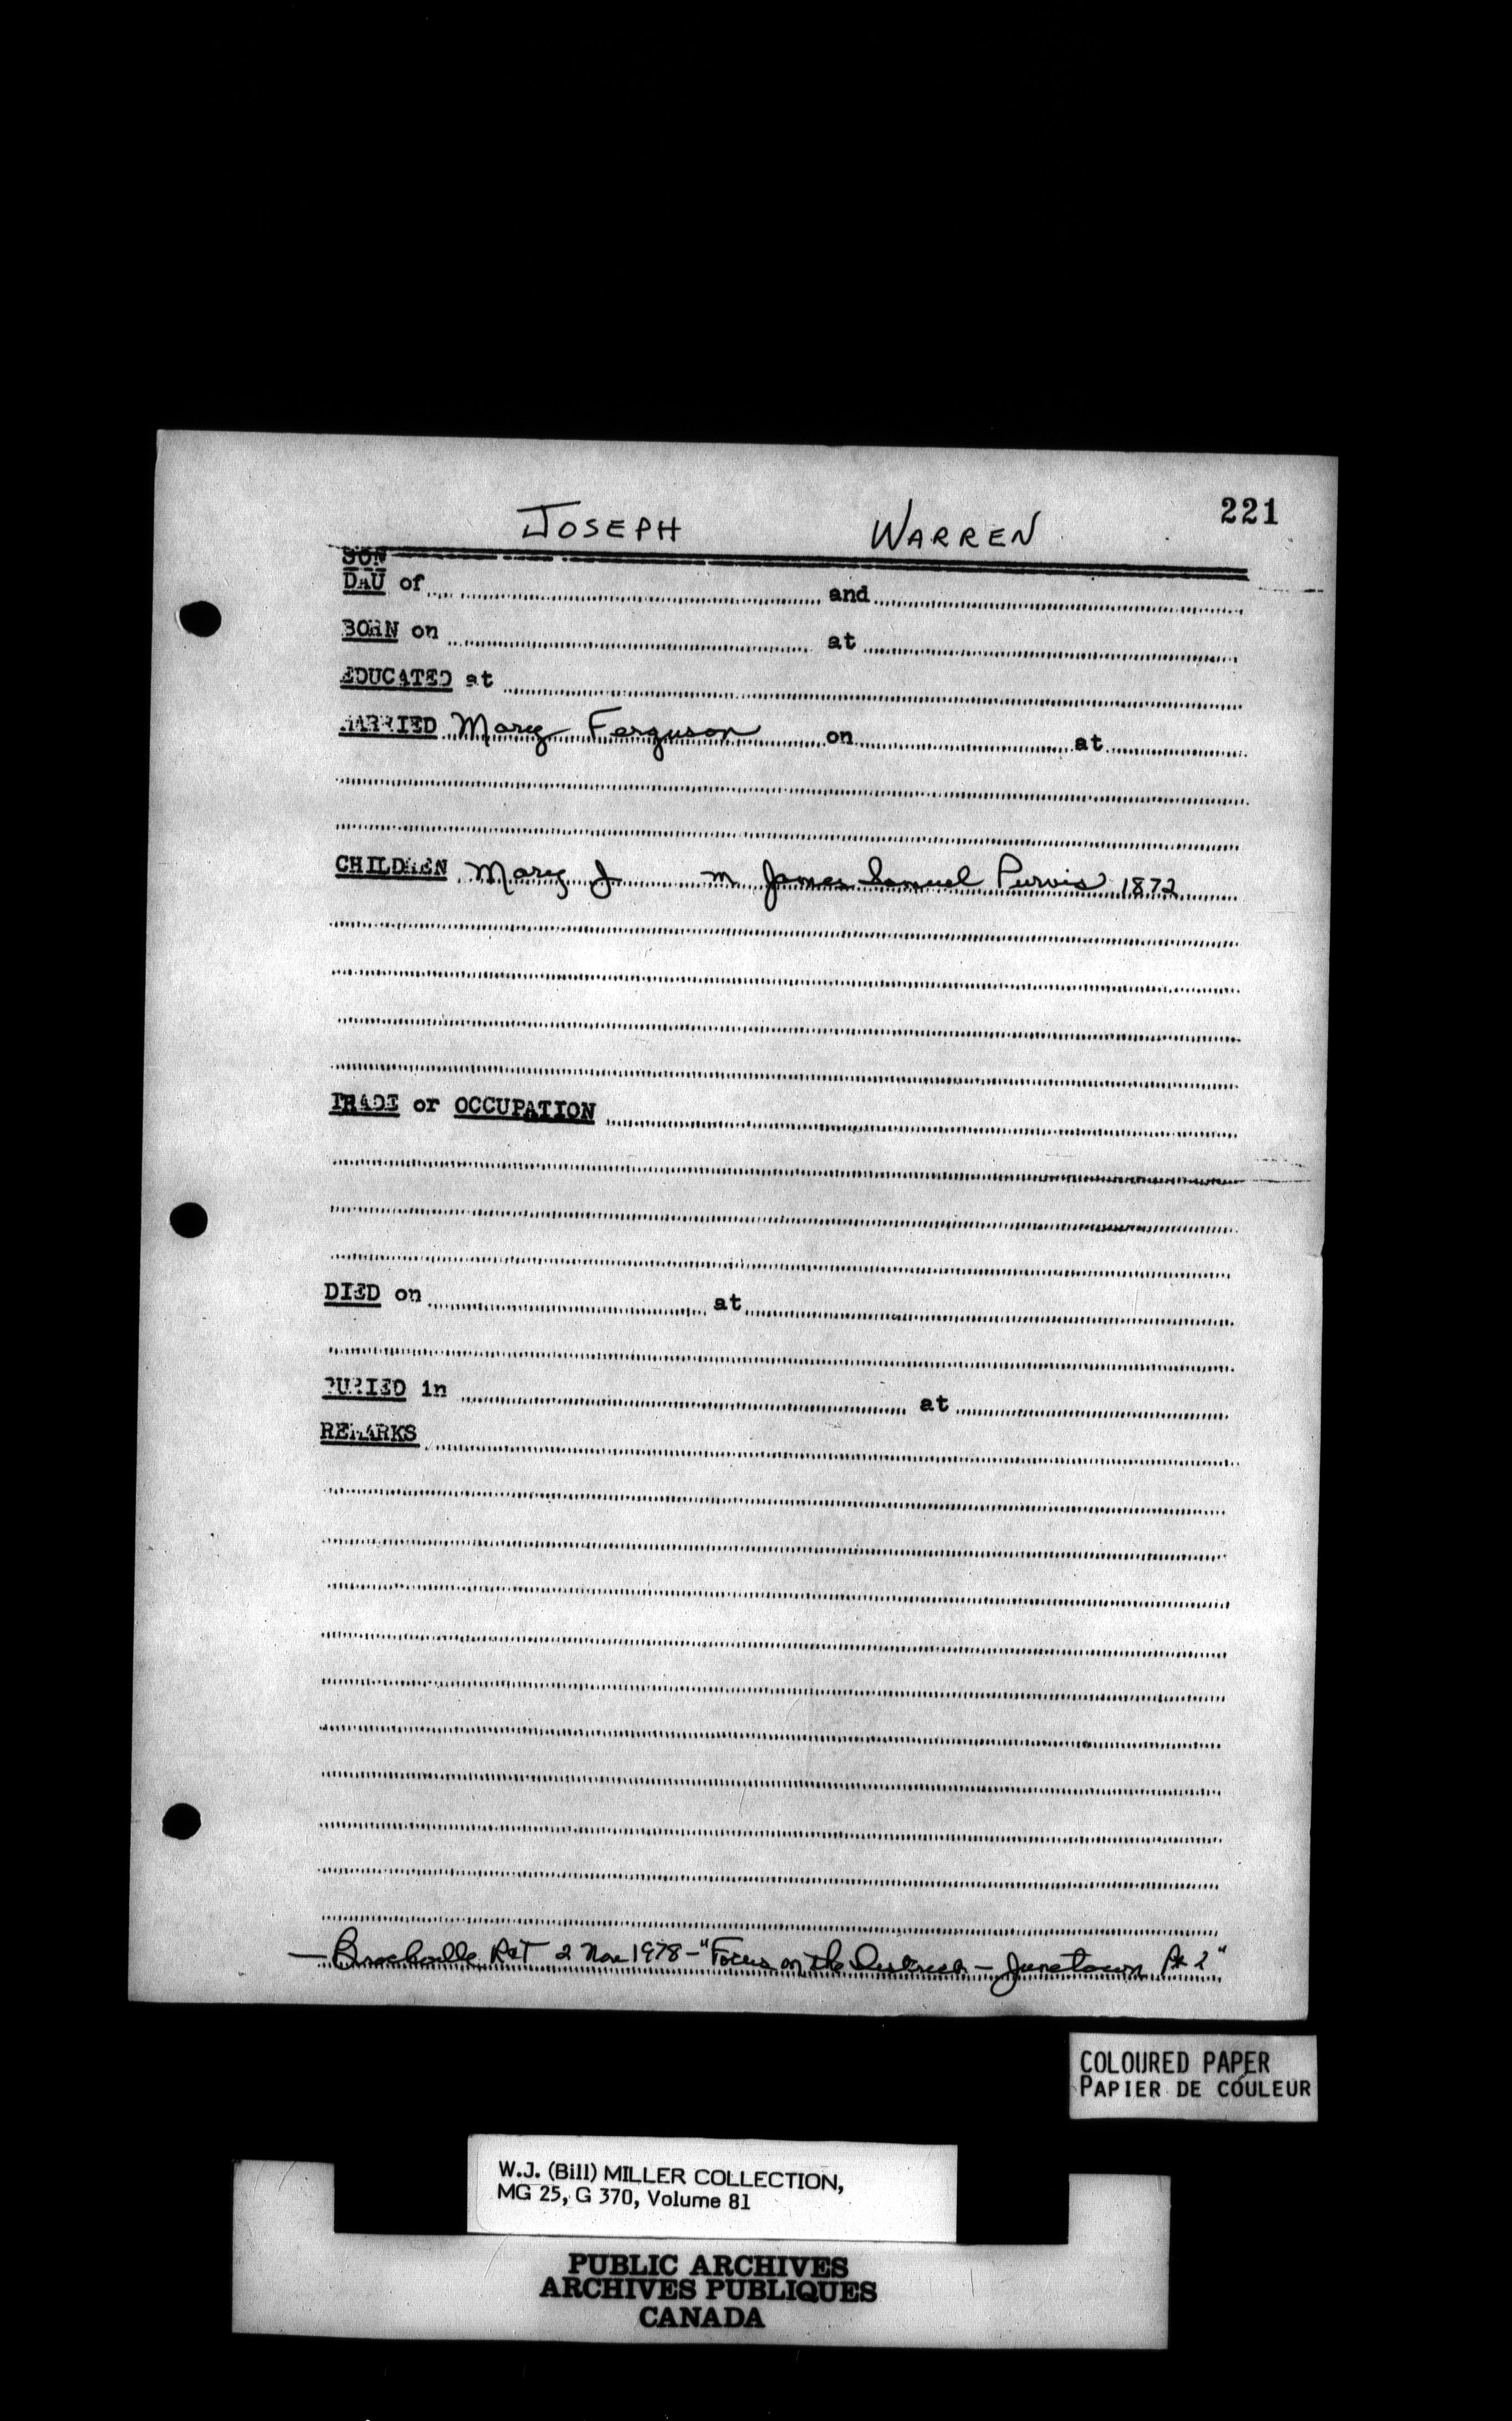 221
JOSEPH WARREN
SON
DAU of and
BORN on at
EDUCATED at
MARRIED Mary Ferguson on at
CHILDREN Mary J m James Samuel Purvis 1872
TRADE or OCCUPATION
DIED on at
BURIED in at
REMARKS
— Brockville R&T 2 Nov 1978 - "Focus on the Districts - Junetown Pt 2"
COLOURED PAPER
PAPIER DE COULEUR
W.J. (Bill) MILLER COLLECTION,
MG 25, G 370, Volume 81
PUBLIC ARCHIVES
ARCHIVES PUBLIQUES
CANADA